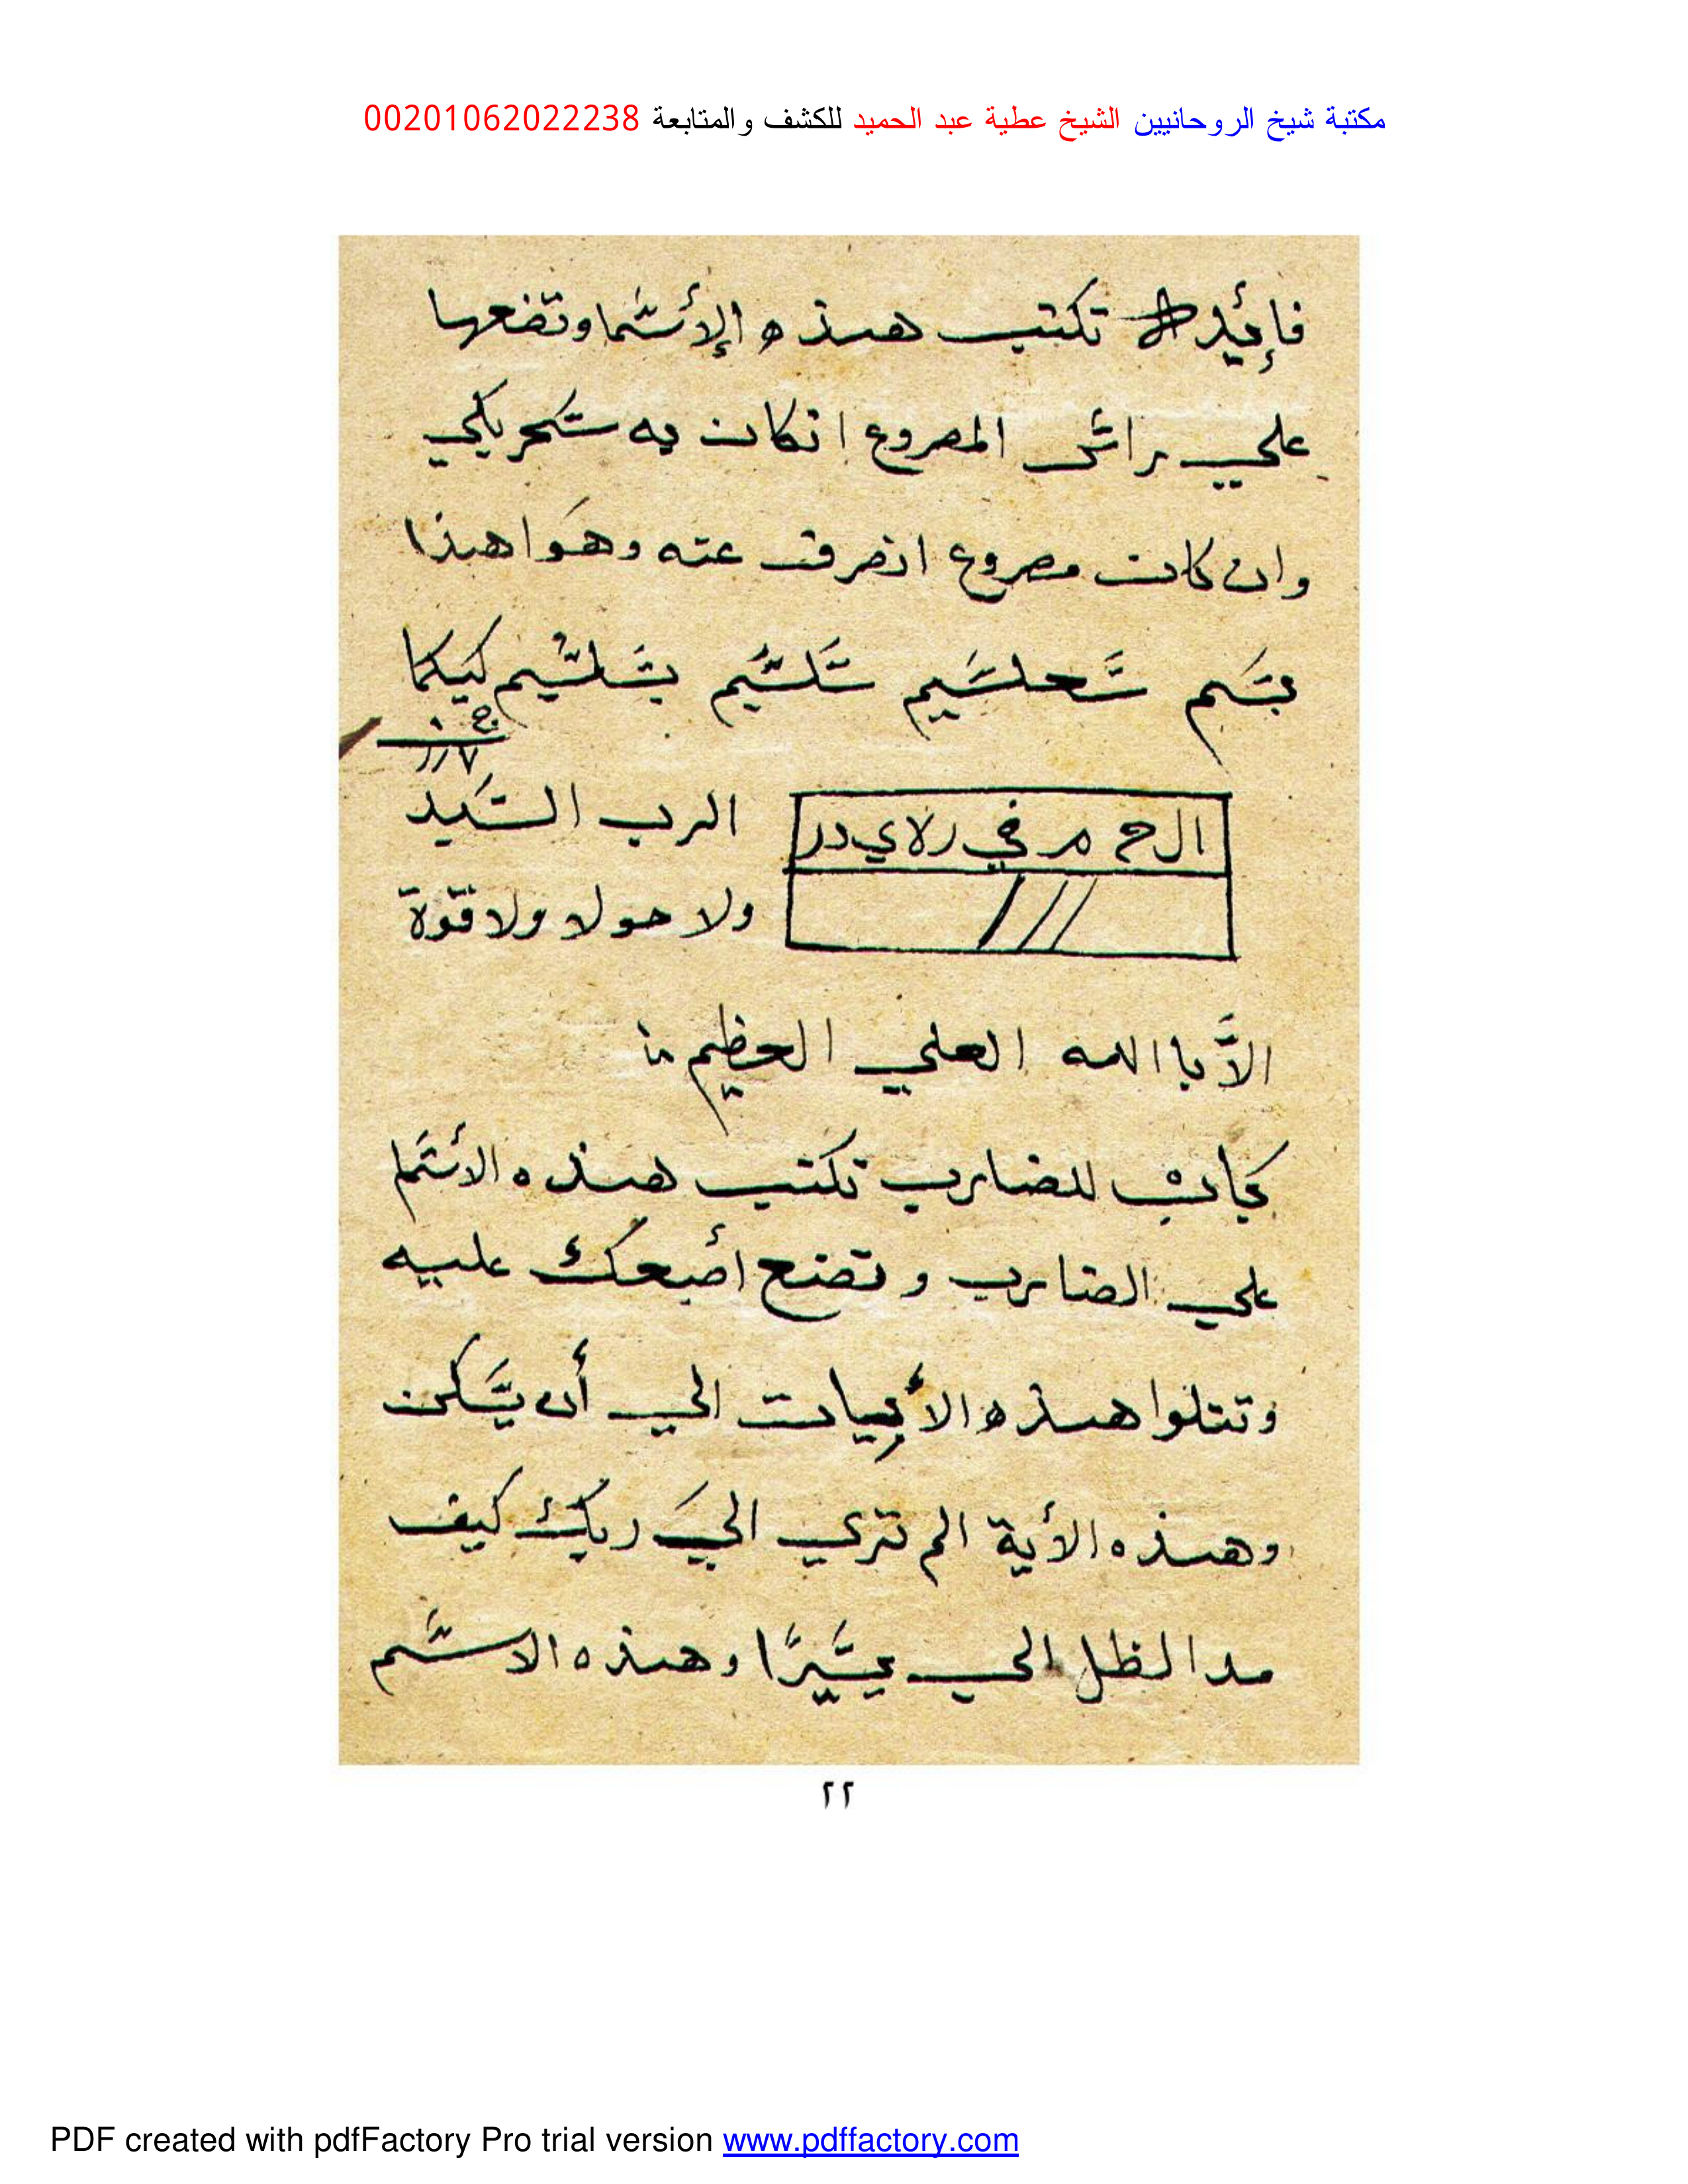 مكتبة شيخ الروحانيين الشيخ عطية عبد الحميد للكشف والمتابعة 00201062022238
تكتب هذه الإأسما وتضعها
علي راس المصروع انكان به سحر يكي
وان كانت مصروع انصرفت عنه وهوا هذا
سحلسيم سلسيم بشلشيم كيكا
ال ح م ر في ر لا ي د ر
الرب السيد
ولا حولا ولا قوة
الاّ با الله العلي العظيم
للضارب تكتب هذه الأسما
علي الضارب و تضع أصبعك عليه
وتتلوا هذه الأبيات الي أن يسكن
وهذه الأية الم تري الي ربك كيف
مد الظل الي يسيرًا وهذه الاسم
٢٢
PDF created with pdfFactory Pro trial version www.pdffactory.com